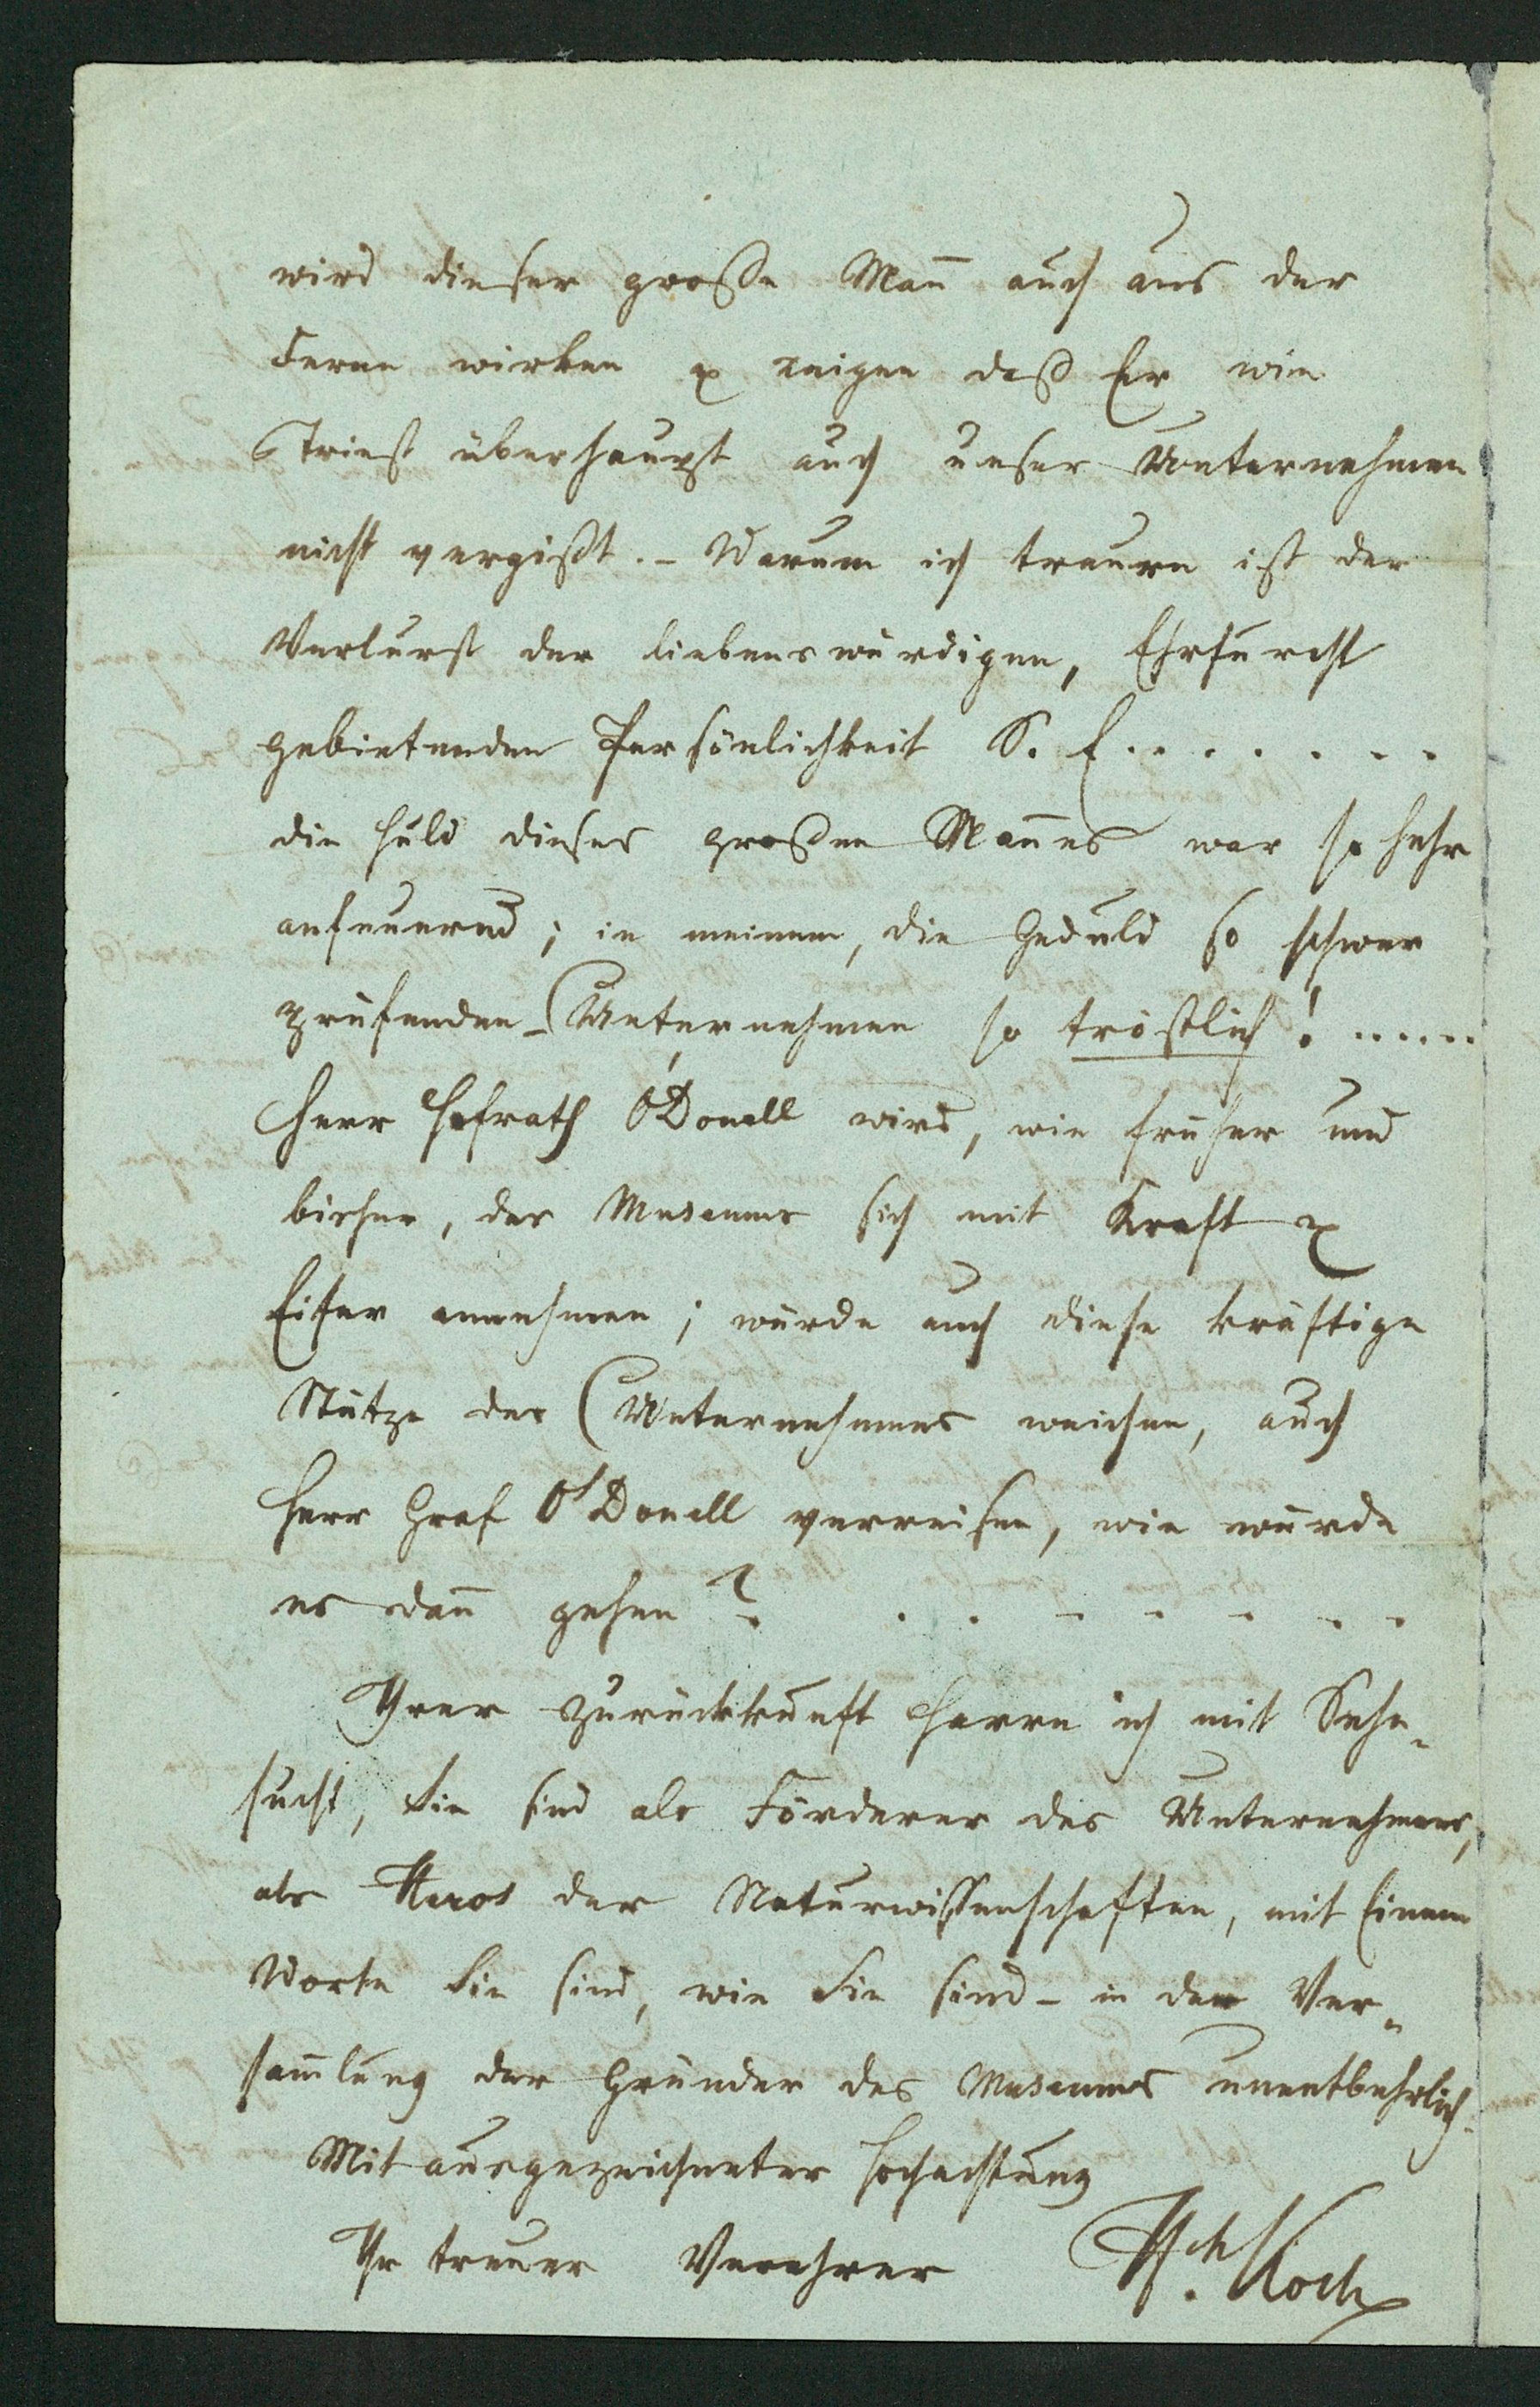 wird dieser große Man̄ auch aus der
Ferne wirken & zeigen daß Er wie
Triest überhaupt auch unser Unternehmen
nicht vergißt. – Warum ich traure ist der
Verlurst der liebenswürdigen, Ehrfurcht
gebietenden Persönlichkeit S. E. . . . . . . .
die Huld dieses großen Man̄es war so sehr
anfeuernd; in meinem, die Geduld so schwer
prüfenden – Unternehmen so tröstlich! .....
Herr Hofrath O'Donell wird, wie früher und
bisher, des Museums sich mit Kraft &
Eifer annehmen; würde auch diese kräftige
Stütze des Unternehmens weichen, auch
Herr Graf O'Donell verreisen, wie würde
es dan̄ gehen? . . . . . . . .
Ihrer Zurückkunft harre ich mit Sehn-
sucht, Sie sind als Förderer des Unternehmens,
als Heros der Naturwissenschaften, mit Einem
Worte Sie sind, wie Sie sind – in der Ver-
sam̄lung der Gründer des Museums unentbehrlich.
Mit ausgezeichneter Hochachtung
Ihr treuer Verehrer Hch. Koch